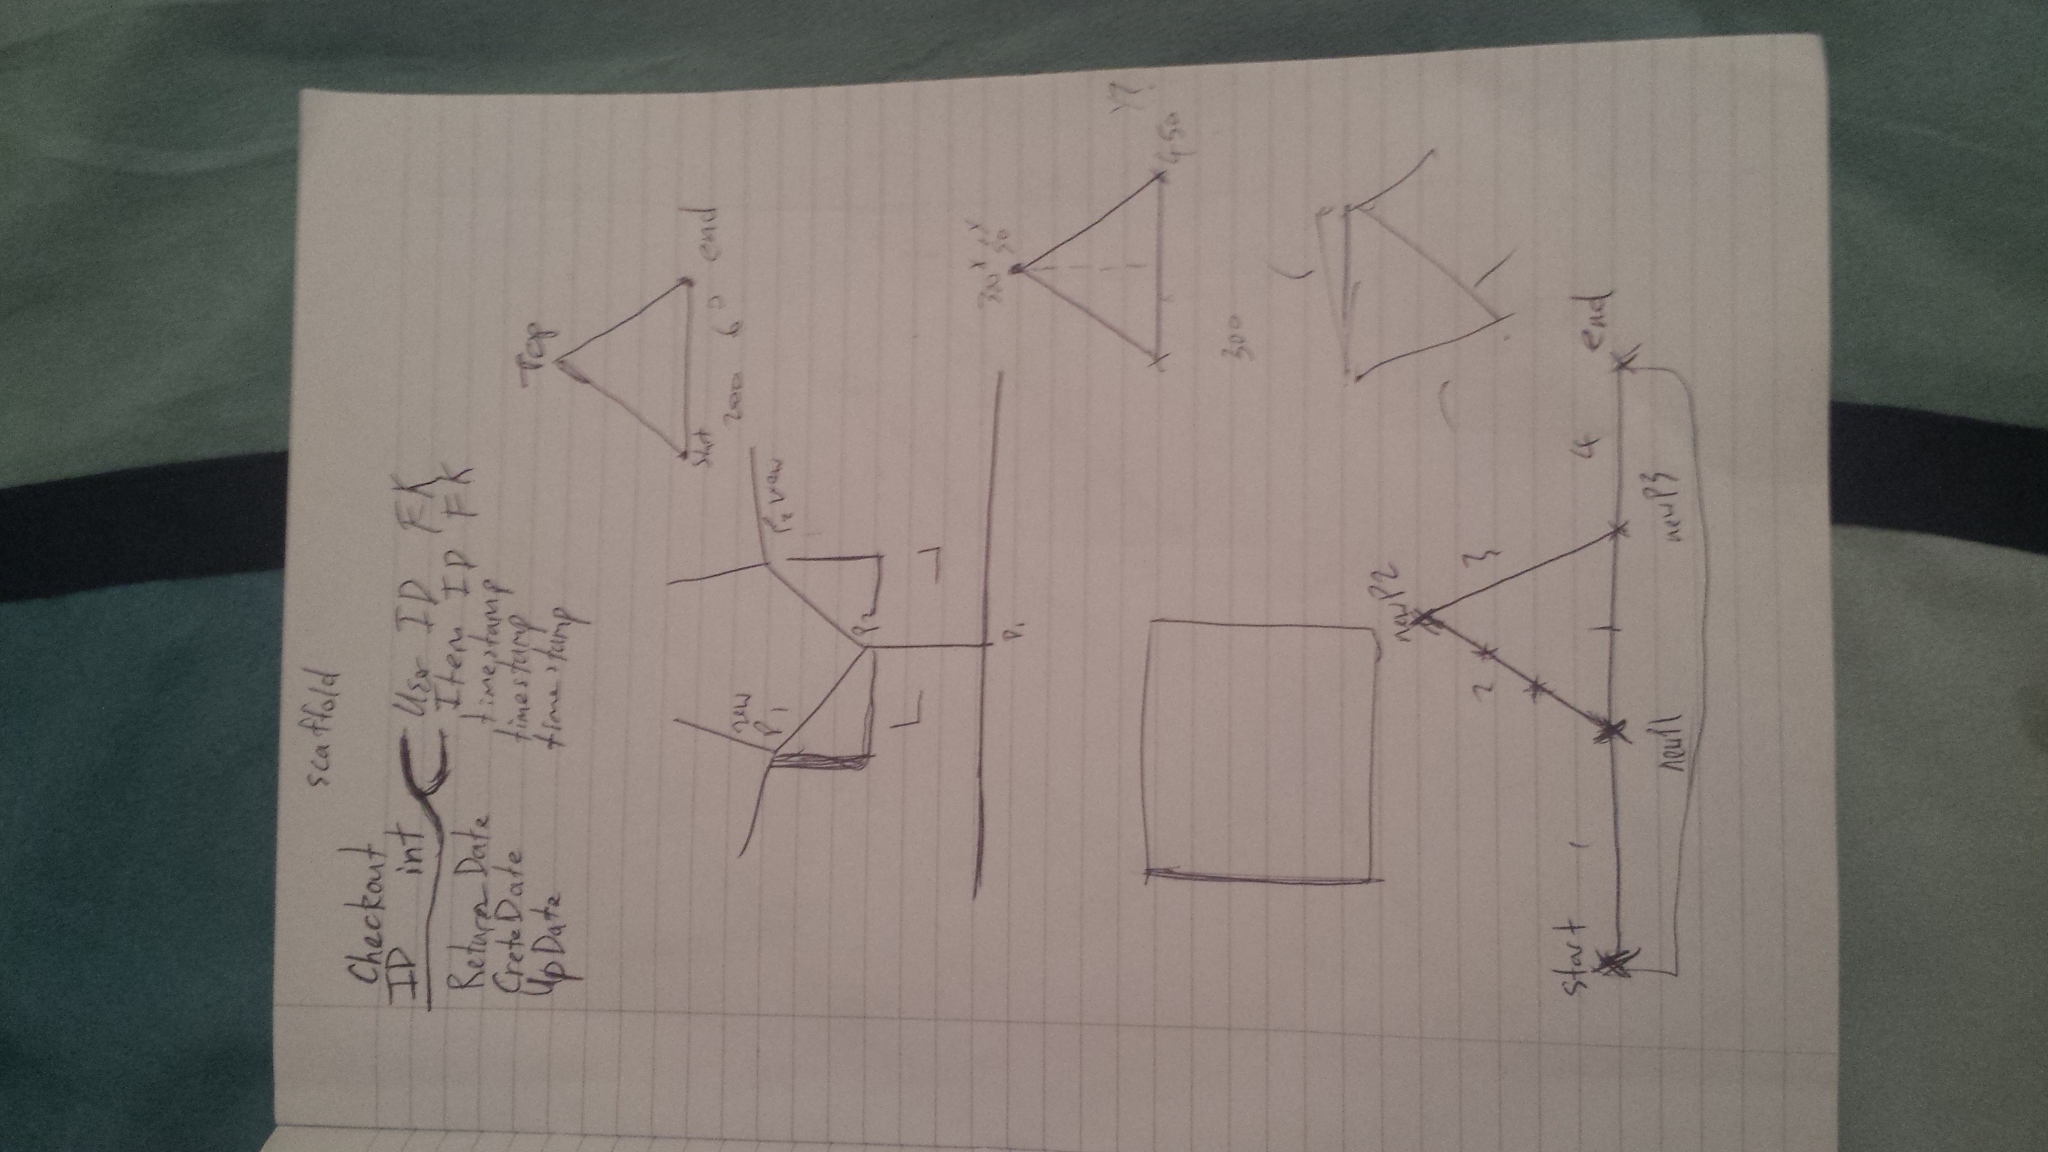 scaffold
Checkout
ID int User ID FK
Item ID FK
Return Date timestamp
CreteDate timestamp
UpDate timestamp
Top
start end
200
new
P1
P2 new
P2
P1
300 50
450 Y?
300
newP2
2 3
start 1 4 end
newP1 newP3